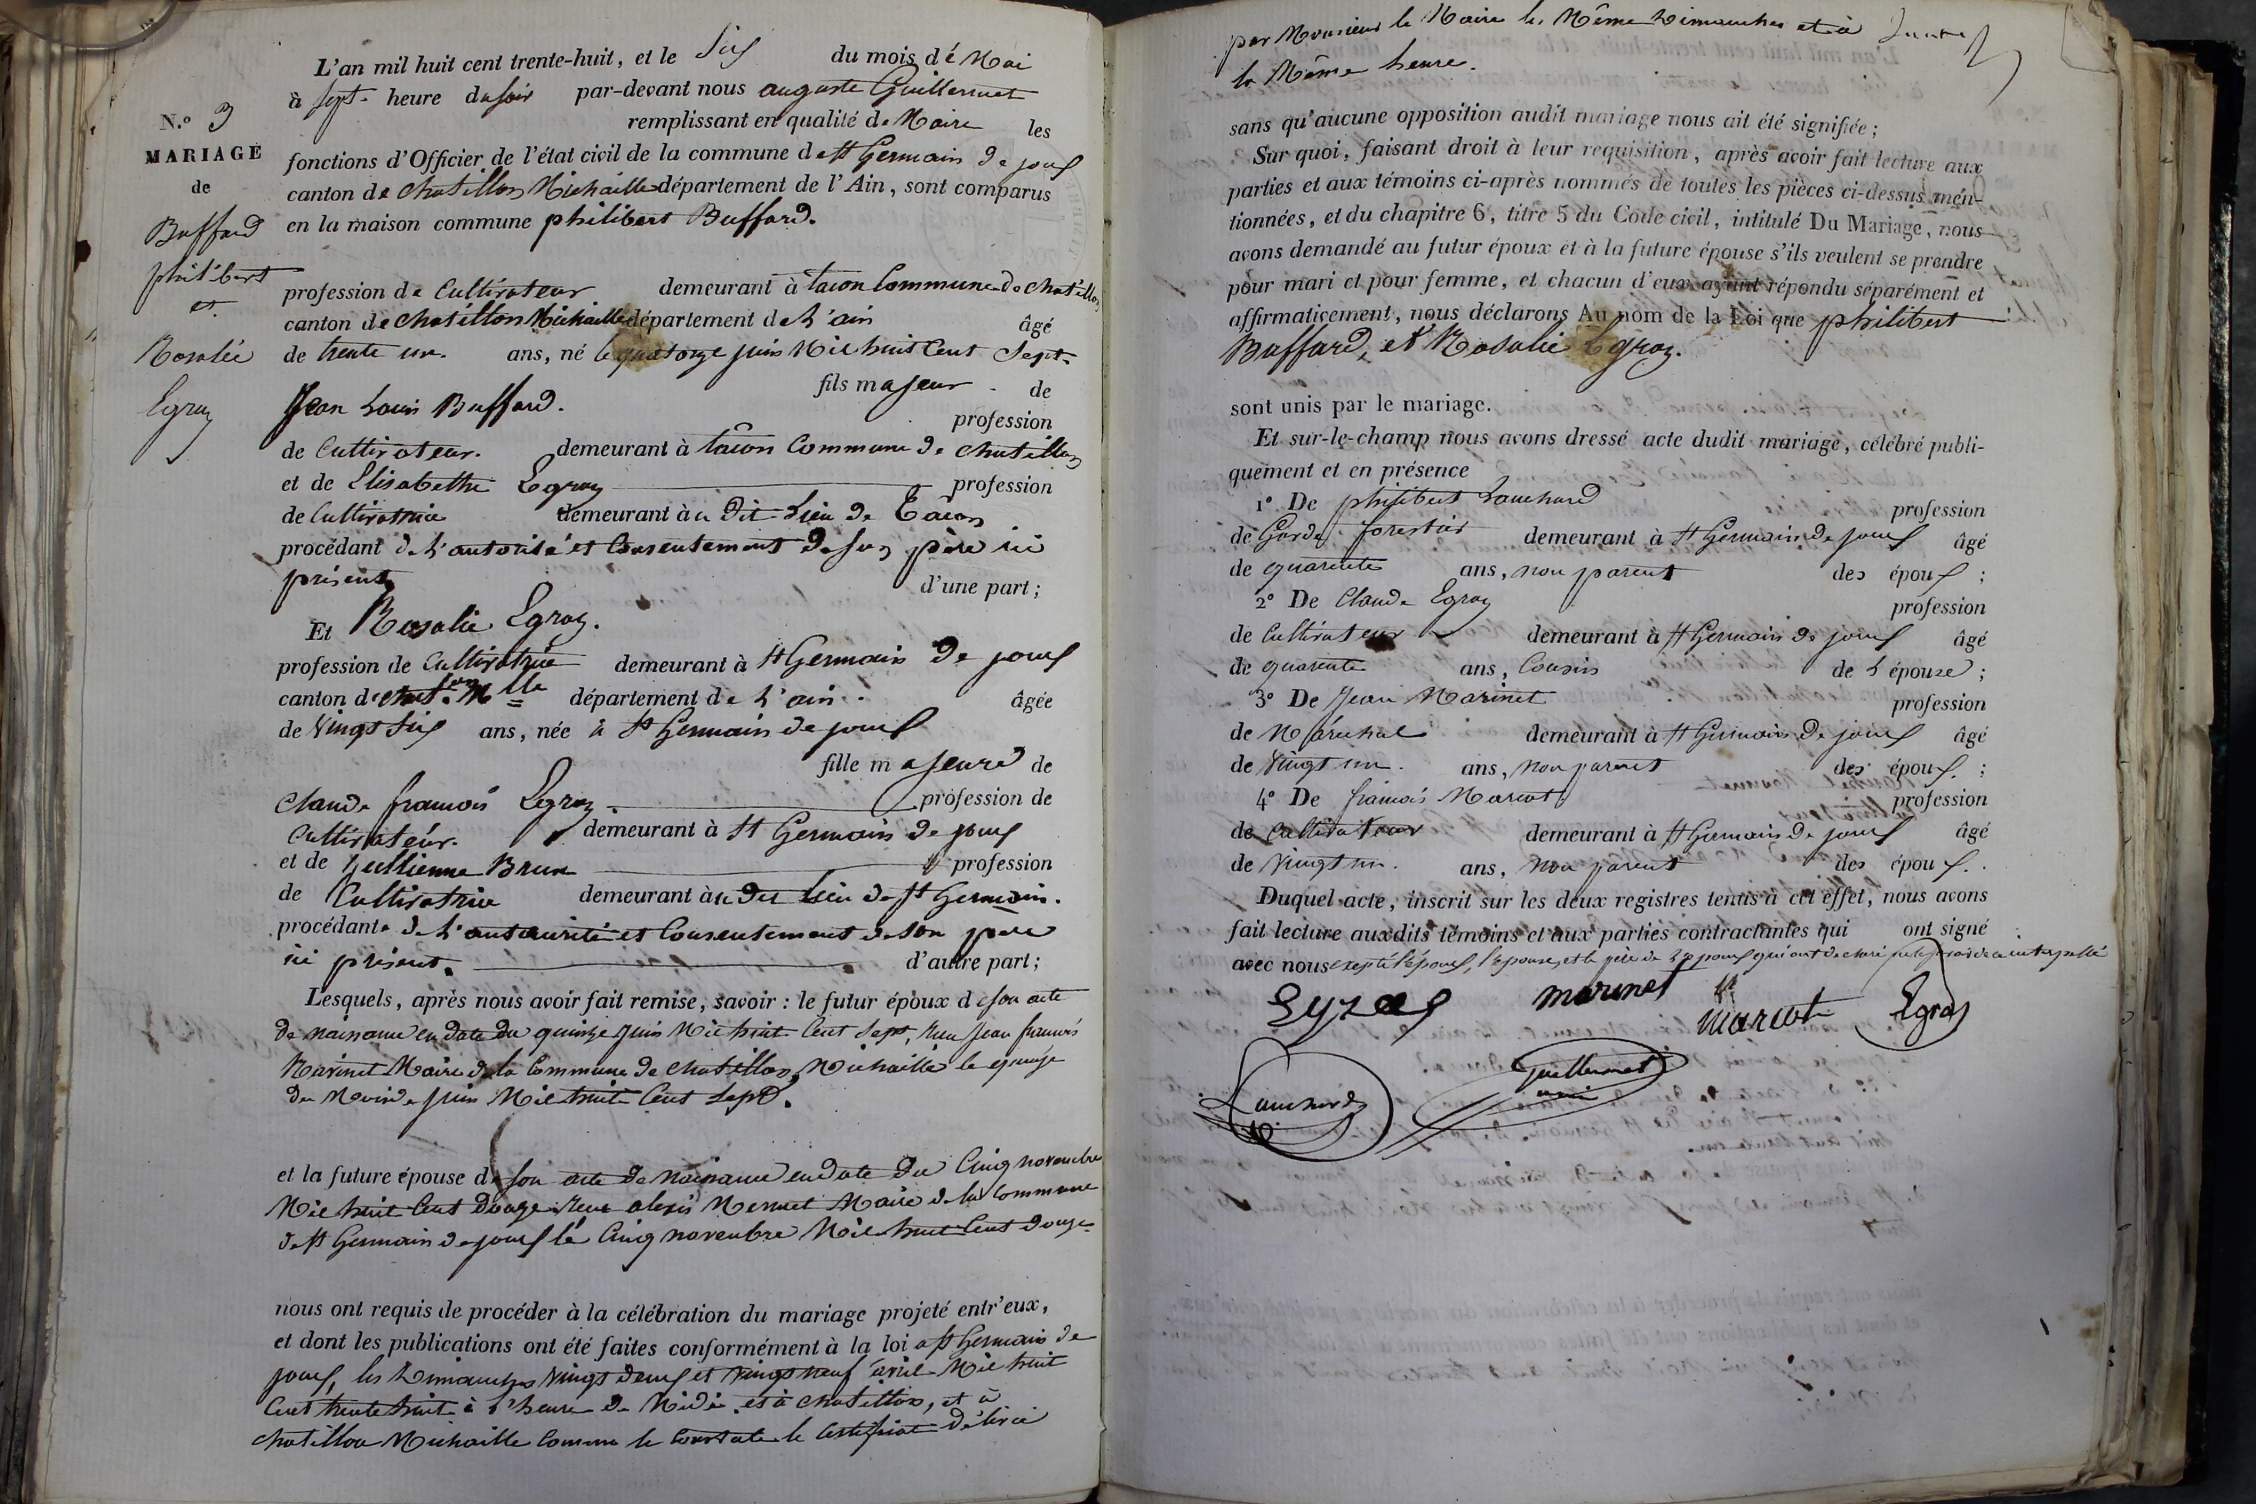 L'an mil huit cent trente-huit, et le six du mois de Mai
à sept heure du soir par-devant nous auguste Guillermet
remplissant en qualité de Maire les
N.o 3
MARIAGE
de
Buffard
philibert
et
Rosalie
Egraz
fonctions d'Officier de l'état civil de la commune de St Germain de joux
canton de chatillon Michaille département de l'Ain, sont comparus
en la maison commune philibert Buffard.
profession de Cultivateur demeurant à tacon Commune de chatillon
canton de chatillon Michaille département de L'ain âgé
de trente un ans, né le quatorze juin Mil huit Cent Sept
fils majeur de
Jean Louis Buffard. profession
de Cultivateur. demeurant à tacon Commune de chatillon
et de Elisabethe Egraz profession
de Cultivatrice demeurant à u dit Lieu de Tacon
procédant de L'autorité et Consentement de son père ici
présent d'une part ;
Et Rosalie Egraz.
profession de Cultivatrice demeurant à St Germain de joux
canton de chat.lon Mlle département de L'ain. âgée
de Vingt six ans, née à St Germain de joux
fille majeure de
Claude françois Egraz profession de
Cultivateur. demeurant à St Germain de joux
et de Jullienne Brun profession
de Cultivatrice demeurant à u dit Lieu de St Germain.
procédante de L'autaurité et Consentement de son père
ici présent. d'autre part ;
Lesquels, après nous avoir fait remise, savoir : le futur époux de son acte
de naissance en date du quinze juin Mil huit Cent Sept, reçu Jean françois
Marinet Maire de la Commune de chatillon Michaille le quinze
du Mois de juin Mil huit Cent Sept.
et la future épouse de son acte de naissance en date du Cinq novembre
Mil huit Cent Douze reçu alexis Mermet Maire de la Commune
de St Germain de joux le Cinq novembre Mil huit Cent douze
nous ont requis de procéder à la célébration du mariage projeté entr'eux,
et dont les publications ont été faites conformément à la loi a St Germain de
joux, les Dimanches Vingt deux et Vingt neuf avril Mil huit
Cent trente huit à L'heure de Midi et à chatillon, et à
chatillon Michaille Comme le Constate le Certificat délivré
par Monsieur le Maire les Même Dimanches et à
la Même heure.
sans qu'aucune opposition audit mariage nous ait été signifiée ;
Sur quoi, faisant droit à leur requisition, après avoir fait lecture aux
parties et aux témoins ci-après nommés de toutes les pièces ci-dessus men-
tionnées, et du chapitre 6, titre 5 du Code civil, intitulé Du Mariage, nous
avons demandé au futur époux et à la future épouse s'ils veulent se prendre
pour mari et pour femme, et chacun d'eux ayant répondu séparément et
affirmativement, nous déclarons Au nom de la Loi que philibert
Buffard, et Rosalie Egraz.
sont unis par le mariage.
Et sur-le-champ nous avons dressé acte dudit mariage, célébré publi-
quement et en présence
1o De philibert Louchard profession
de Garde forestier demeurant à St Germain de joux âgé
de quarente ans, non parent des époux ;
2o De Claude Egraz profession
de Cultivateur demeurant à St Germain de joux âgé
de quarente ans, Cousin de L'épouse ;
3o De Jean Marinet profession
de Maréchal demeurant à St Germain de joux âgé
de Vingt un. ans, non parent des époux. ;
4o De françois Marcot profession
de Cultivateur demeurant à St Germain de joux âgé
de Vingt un. ans, non parent des époux.
Duquel acte, inscrit sur les deux registres tenus à cet effet, nous avons
fait lecture auxdits témoins et aux parties contractantes qui ont signé
avec nous excepté l'époux, l'épouse, et le père de L'époux qui ont declaré
Egraz marinet Marcot Egraz
Louchard Guillermet
maire